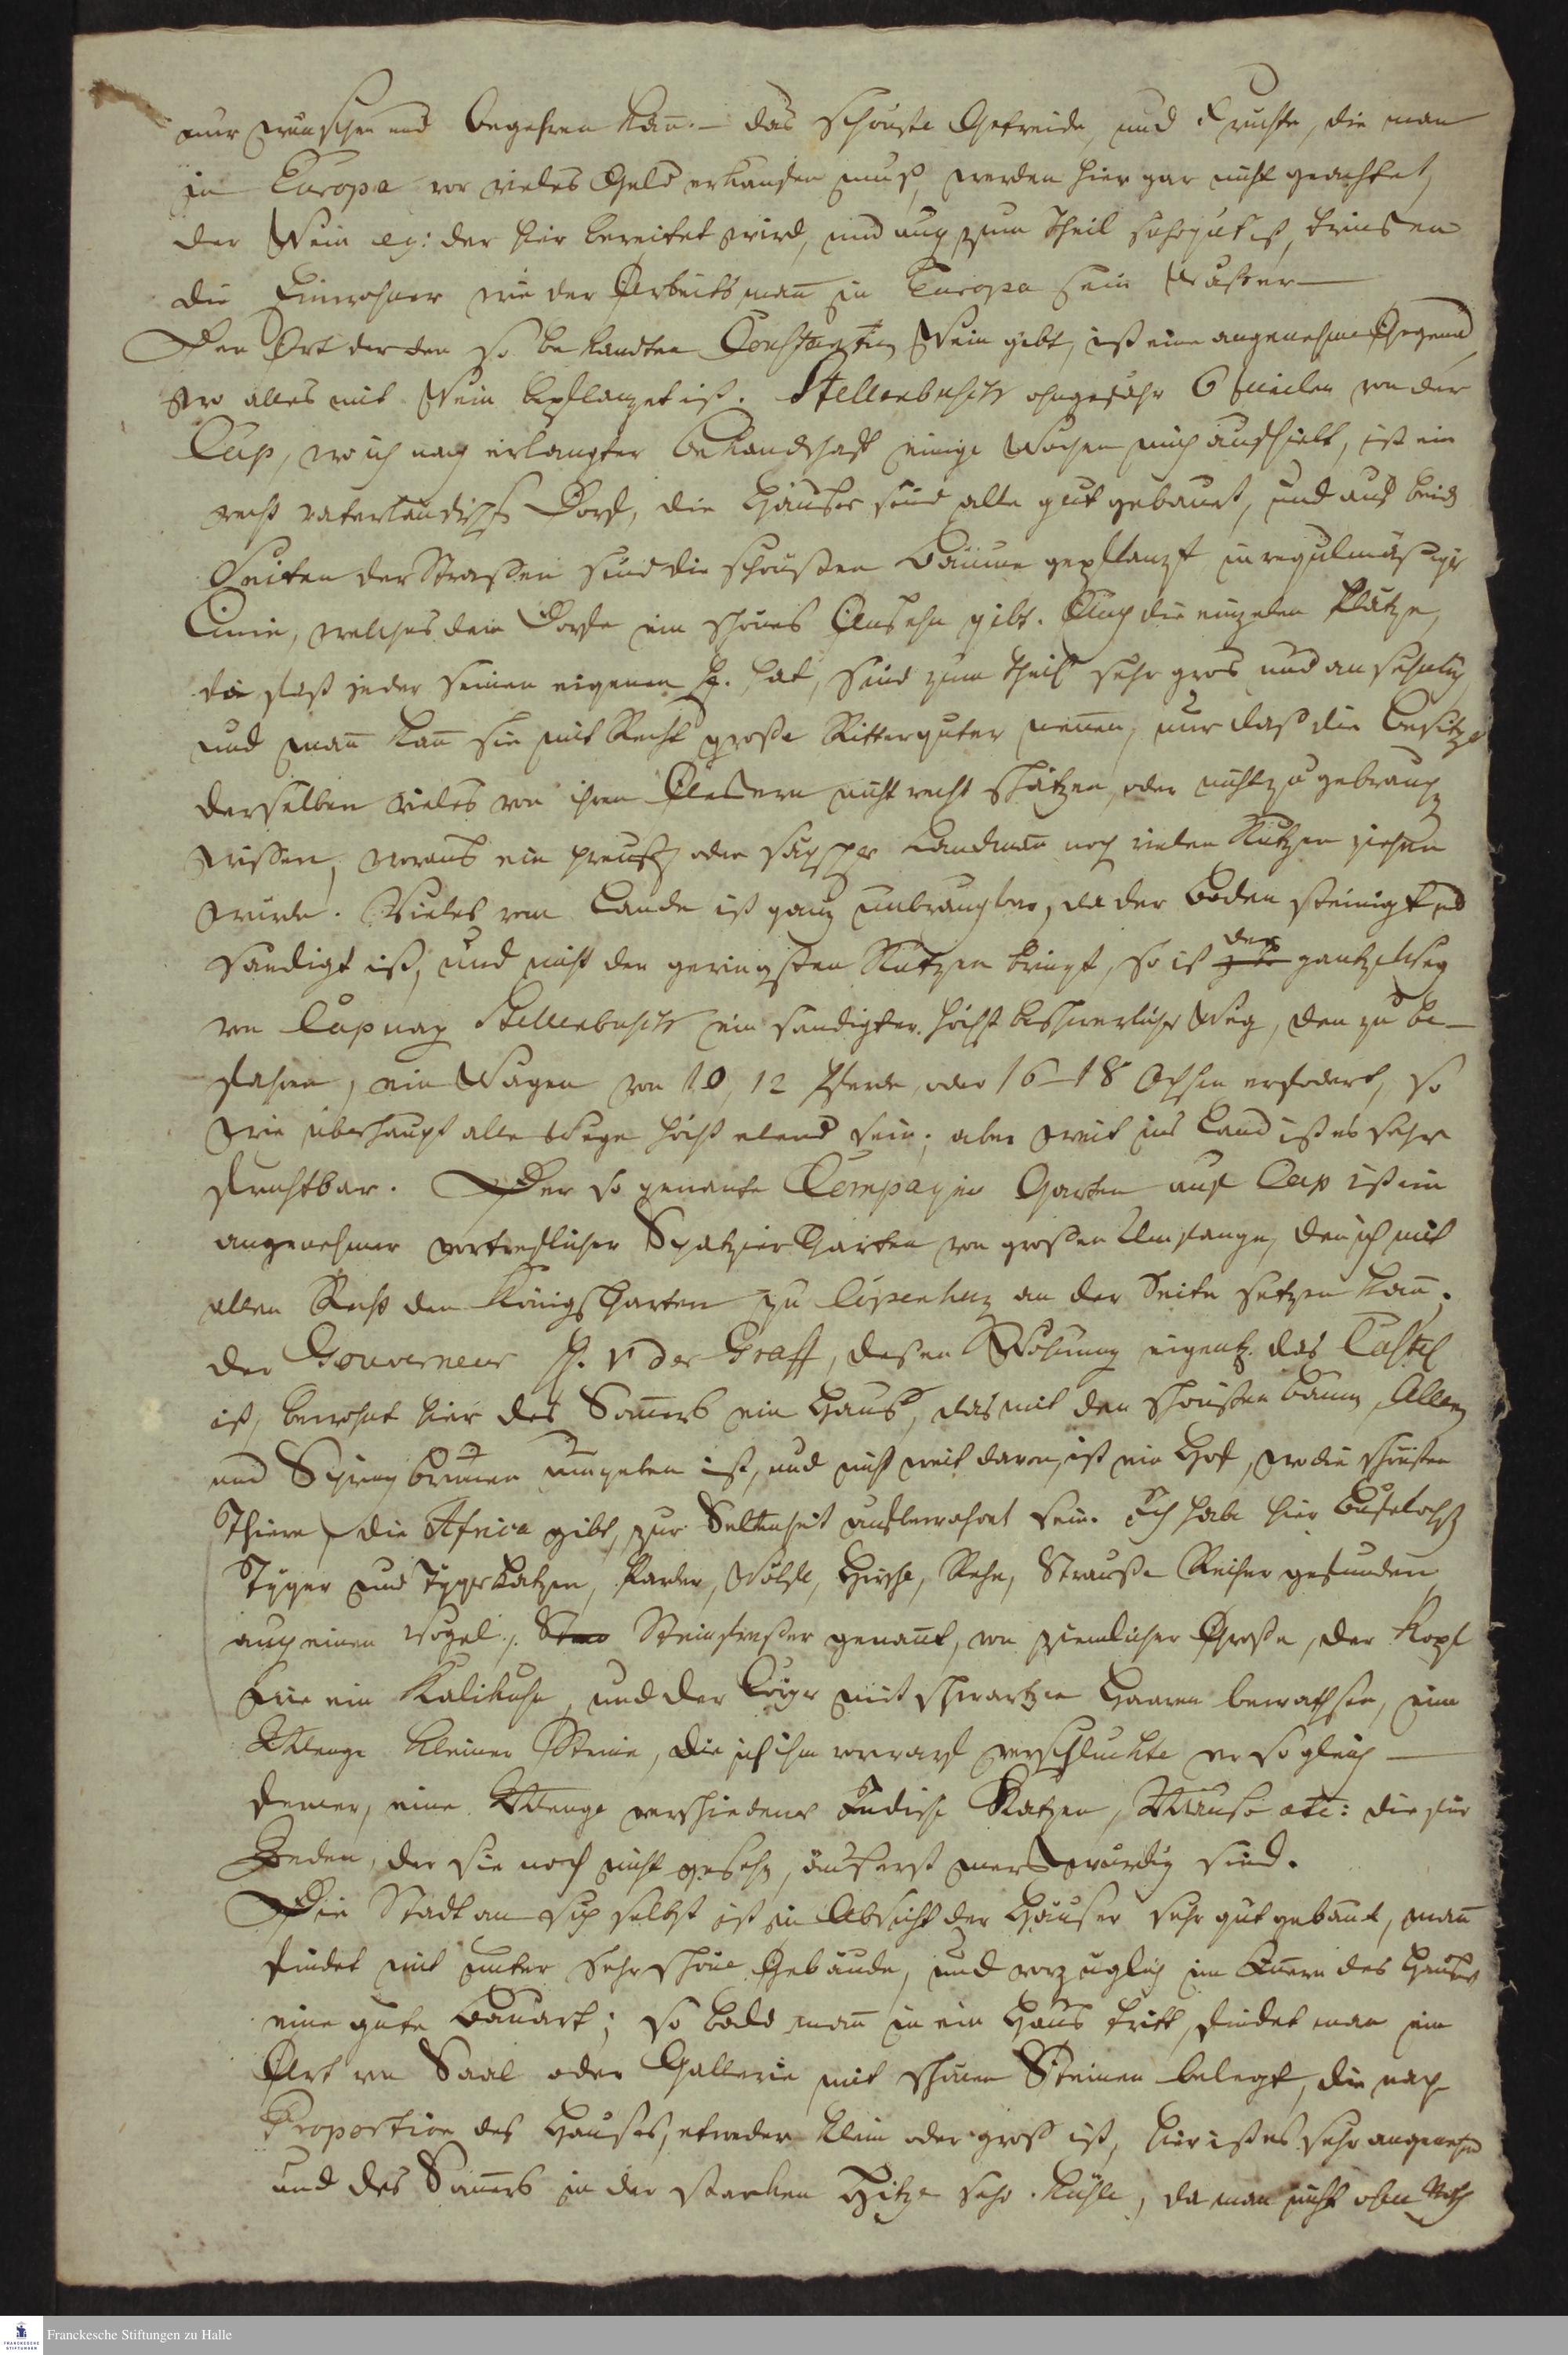 nur wünschen und begehren kan̄. – das schönste Getreide, und Früchte, die man
in Europa vor vieles Geld erkaufen muß, werden hier gar nicht geachtet,
der Wein eg: der hier bereitet wird, und auch zum Theil sehr gut ist, trinken
die Einwohner wie der Arbeitsman̄ in Europa sein Waßer —
Der Ort der den so bekandten Constantien Wein gibt, ist eine angenehme Gegend,
wo alles mit Wein bepflanzet ist. Stellenbusch ohngefähr 6 Meilen von der
Cap, wo ich nach erlangter Bekandschaft einige Wochen mich aufhielt, ist ein
recht vaterländisches Dorf, die Häußer sind alle gut gebauet, und auf beiden
Seiten der Straßen sind die schönsten Bäume gepflanzt in regulmäßiger
Linie, welches dem Dorfe ein schönes Ansehn gibt. Auch die einzelen Plätze,
die fast jeder seinen eigenen hat, sind zum Theil sehr gros und ansehnlich
und man̄ kan̄ sie mit Recht große Ritterguter nen̄en, nur daß die Besitzer
derselben vieles von ihren Aeckern nicht recht schätzen, oder nicht zu gebrauchen
wissen, woraus ein preuß. oder sächscher Landman̄ noch vielen Nutzen ziehen
würde. Vieles vom Lande ist ganz unbrauchbar, da der Boden steinigt und
sandigt ist, und nicht den geringsten Nutzen bringt, so ist der gantze Weg
von Cap nach Stellenbusch ein sandigter höchst beschwerlicher Weg, den zu be-
fahren, ein Wagen von 10, 12 Pferde, oder 16–18 Ochsen erfodert, so
wie überhaupt alle Wege höchst elend sein; aber weit ins Land ist es sehr
fruchtbar. Der so genante Compagnie Garten auf Cap ist ein
angenehmer vortreflicher Spatzier Garten von großen Umfange, den ich mit
allen Recht den Königsgarten zu Copenhag an der Seite setzen kan̄.
der Gouverneur H. v der Graff, deßen Wohnung eigentl. das Castel
ist, bewohnt hier des Som̄ers ein Hauß, das mit den schönsten Bäumen, Alleen
und Springbrun̄en umgeben ist, und nicht weit davon, ist ein Hof, wo die schönsten
Thiere, die Africa gibt, zur Seltenheit aufbewahret sein. Ich habe hier Büfelochs
Tyger und Tygerkatzen, Parder, Wölfe, Hirsche, Rehe, Strauße Reiher gefunden
auch einen Vogel, Steinfreßer genan̄t, von ziemlicher Große, der Kopf
wie ein Kalikuhn, und der Cörper mit schwartzen Haaren bewachsen, eine
Menge kleiner Steine, die ich ihm vorwarf verschluckte er sogleich —
ferner, eine Menge verschiedener Indisch Katzen, Mäuse etc: die für
Jeden, der sie noch nicht gesehn, äuserst merkwürdig sind.
Die Stadt an sich selbst ist in Absicht der Häuser sehr gut gebaut, man̄
findet mit unter sehr schöne Gebäude, und vorzüglich im In̄ern des Haußes
eine gute Bauart; so bald man̄ in ein Haus tritt, findet man eine
Art von Saal oder Gallerie mit schönen Steinen belegt, die nach
Proportion des Hauses, etweder klein oder groß ist, hier ist es sehr angenehm
und des Som̄ers in der starken Hitze sehr kühle, da man nicht ohne Noth
Franckesche Stiftungen zu Halle